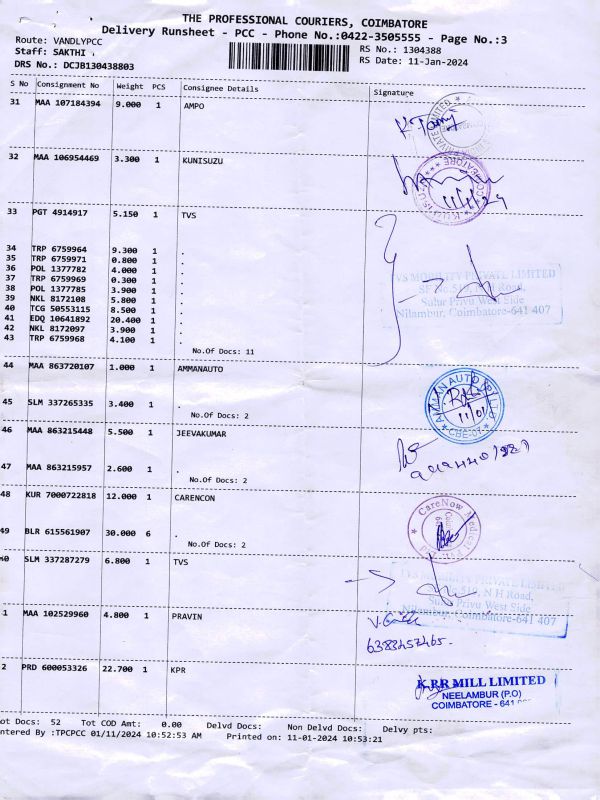 THE PROFESSIONAL COURIERS, COIMBATORE
Delivery Runsheet - PCC - Phone No.:0422-3505555 - Page No.:3
Route: VANDLYPCC
Staff: SAKTHI
RS No.: 1304388
DRS No.: DCJB130438803
RS Date: 11-Jan-2024
S No Consignment No Weight PCS Consignee Details Signature
31 MAA 107184394 9.000 1 AMPO
K
32 MAA 106954469 3.300 1 KUNISUZU
11/1/24
33 PGT 4914917 5.150 1 TVS
34 TRP 6759964 9.300 1 .
35 TRP 6759971 0.800 1 .
36 POL 1377782 4.000 1 .
37 TRP 6759969 0.300 1 .
38 POL 1377785 3.900 1 .
39 NKL 8172108 5.800 1 .
40 TCG 50553115 8.500 1 .
41 EDQ 10641892 20.400 1 .
42 NKL 8172097 3.900 1 .
43 TRP 6759968 4.100 1 .
No.Of Docs: 11
TVS MOBILITY PRIVATE LIMITED
SF No.519, N H Road,
Sulur Privu West Side
Nilambur, Coimbatore-641 407
44 MAA 863720107 1.000 1 AMMANAUTO
AMMAN AUTO
11/01
CBE-07
45 SLM 337265335 3.400 1 .
No.Of Docs: 2
46 MAA 863215448 5.500 1 JEEVAKUMAR
47 MAA 863215957 2.600 1 .
No.Of Docs: 2
48 KUR 7000722818 12.000 1 CARENCON
CareNow Medical
49 BLR 615561907 30.000 6 .
No.Of Docs: 2
SLM 337287279 6.800 1 TVS
TVS MOBILITY PRIVATE LIMITED
N H Road,
Sulur Privu West Side
Nilambur, Coimbatore-641 407
1 MAA 102529960 4.800 1 PRAVIN
6383457465.
2 PRD 600053326 22.700 1 KPR
K.P.R MILL LIMITED
NEELAMBUR (P.O)
COIMBATORE - 641
ot Docs: 52 Tot COD Amt: 0.00 Delvd Docs: Non Delvd Docs: Delvy pts:
ntered By :TPCPCC 01/11/2024 10:52:53 AM Printed on: 11-01-2024 10:53:21